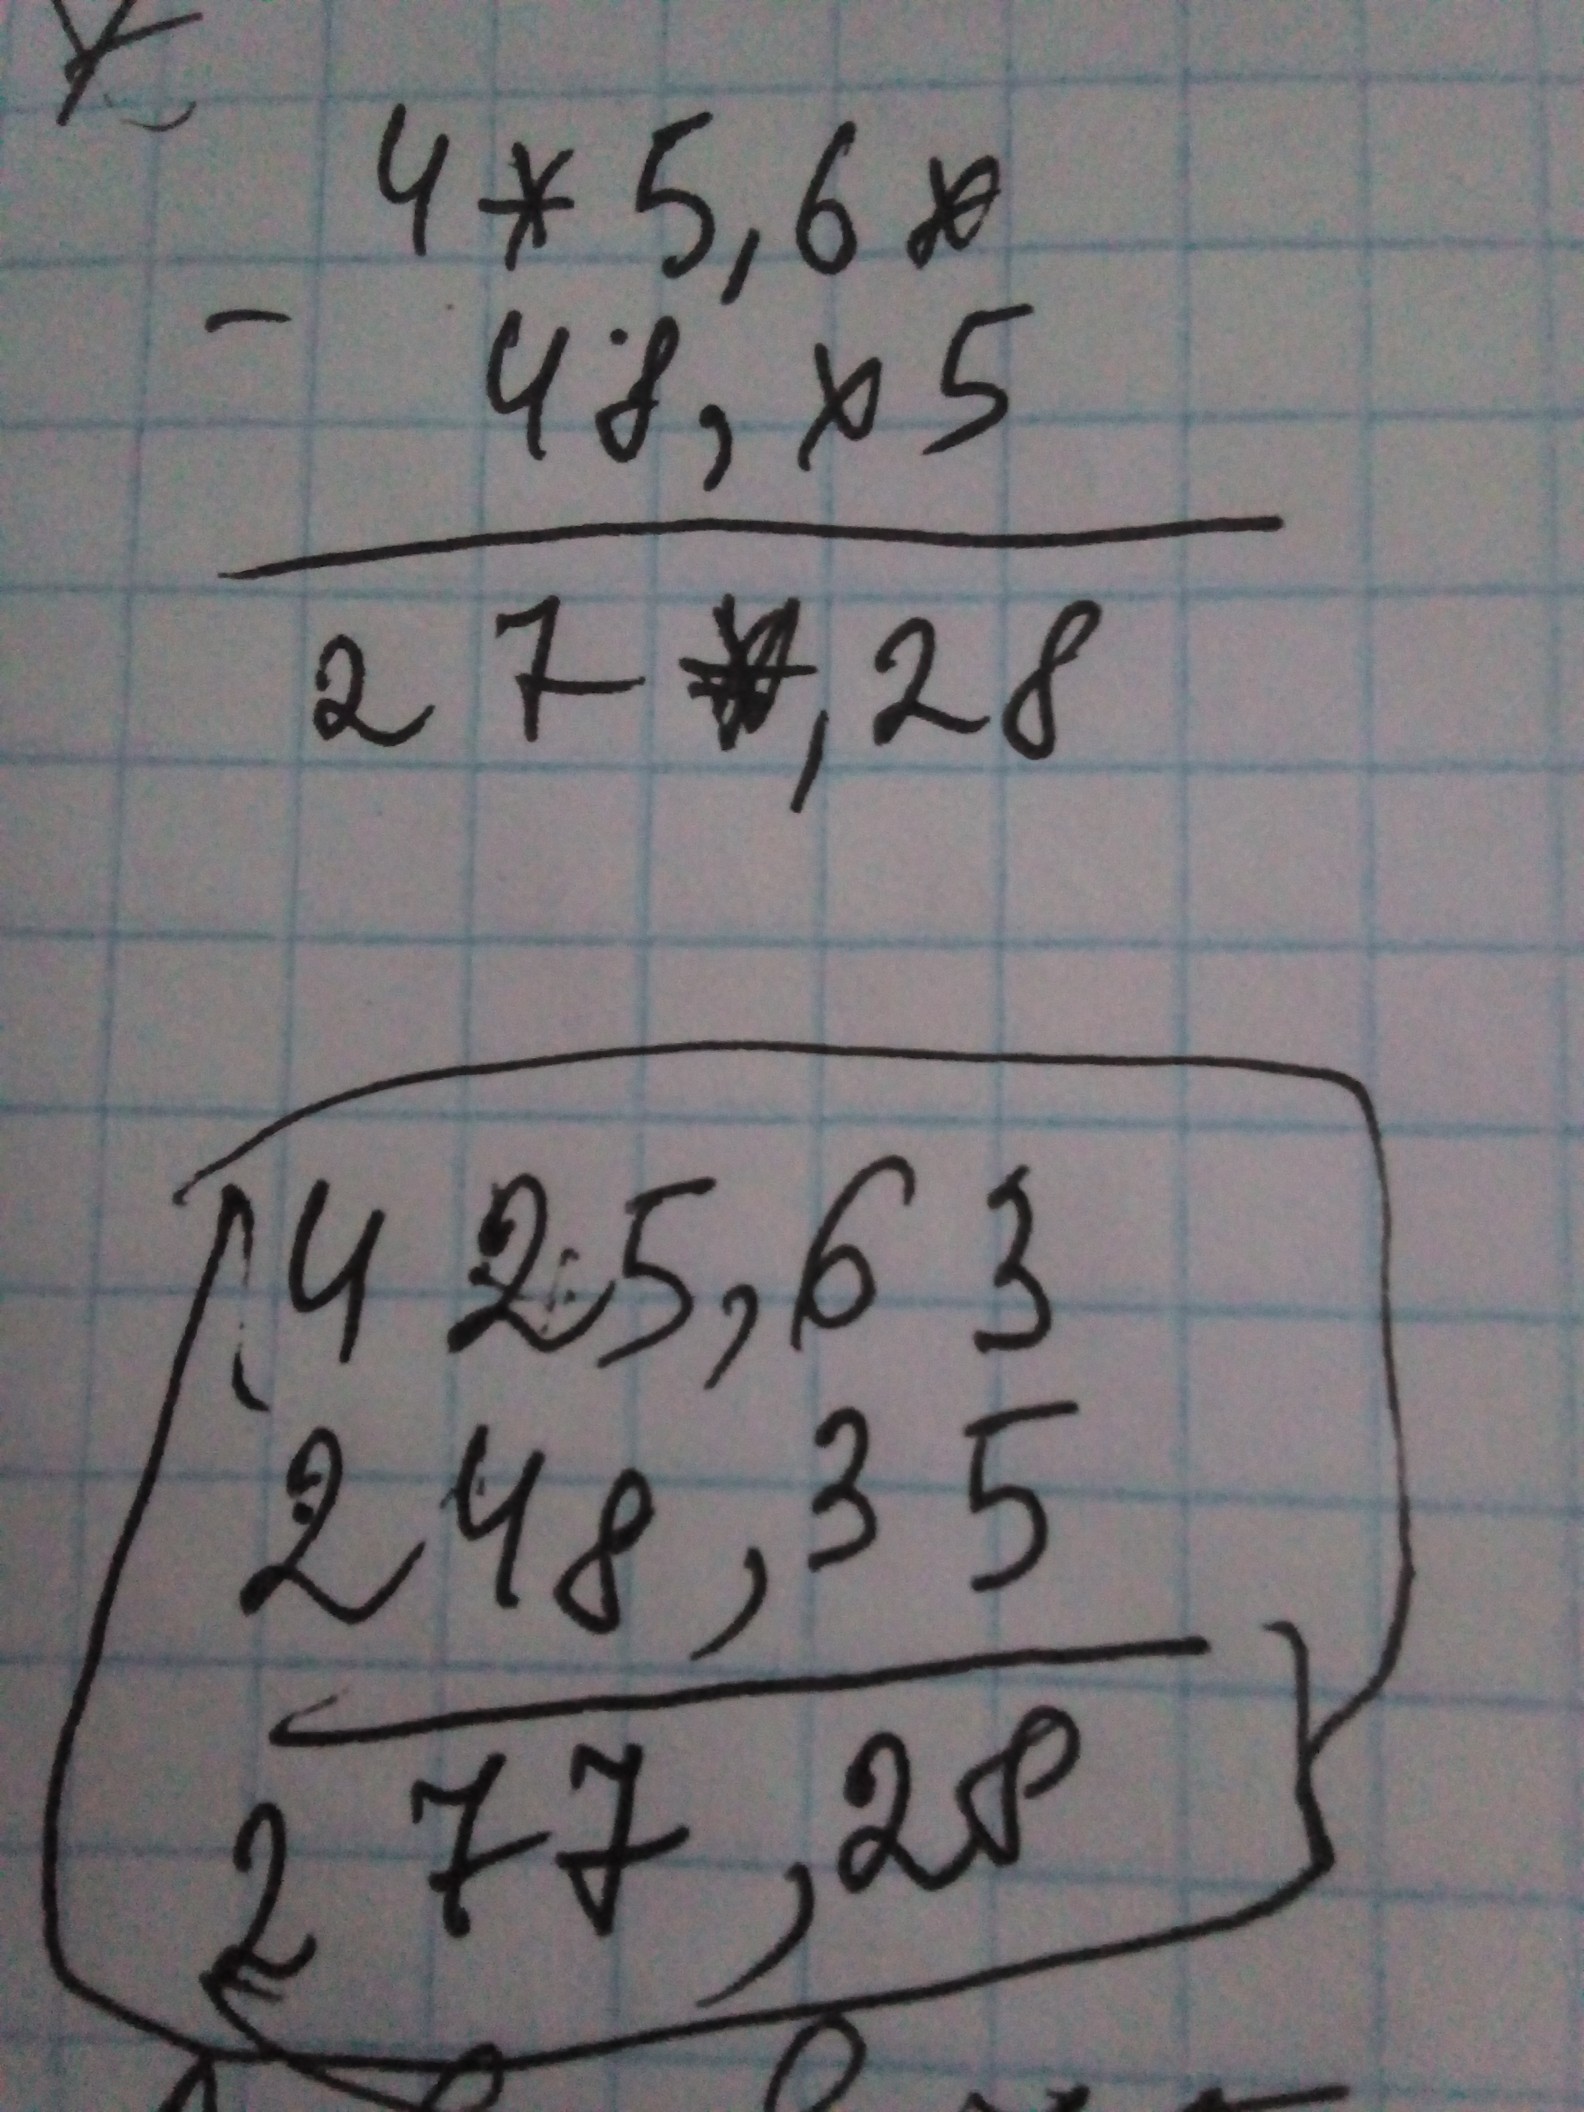 4*5,6*
-
48,*5
27*,28
425,63
248,35
277,28